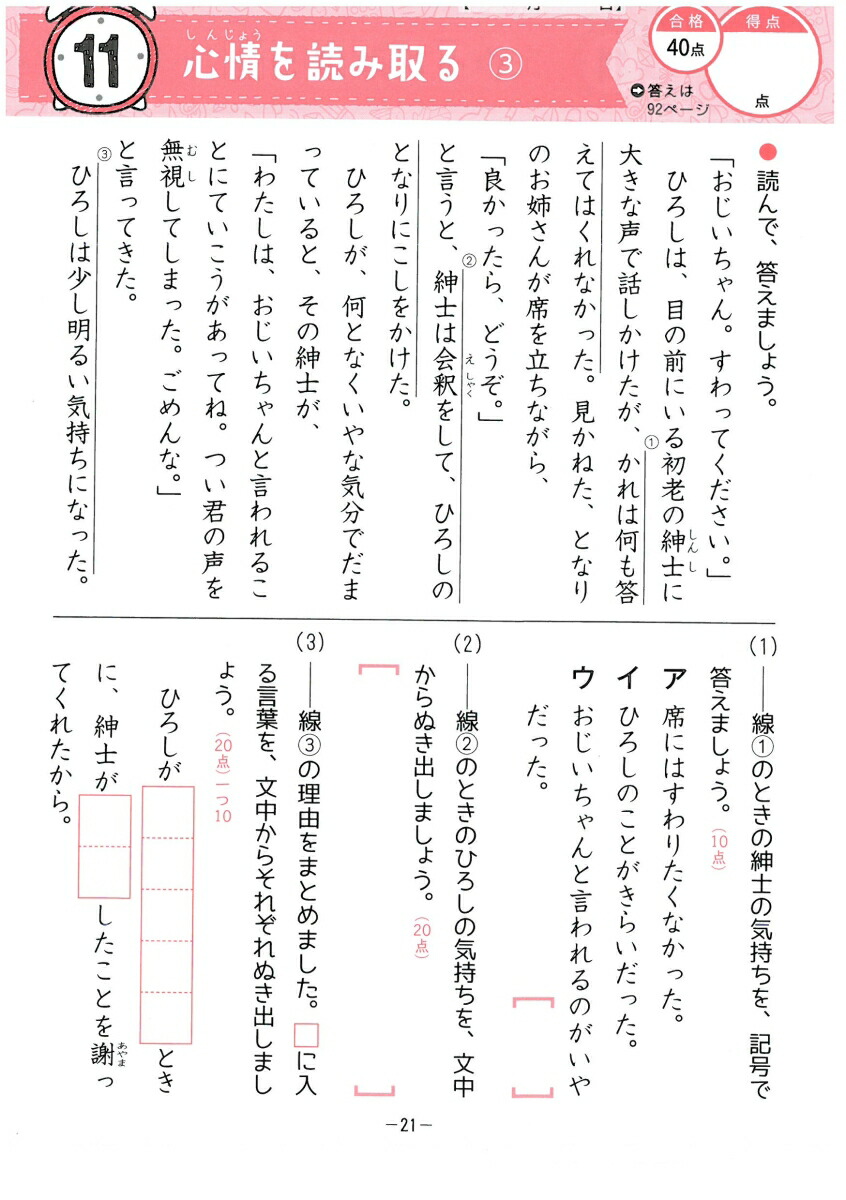 11
心情を読み取る ③
しんじょう
合格
40点
得点
点
答えは
92ページ
● 読んで、答えましょう。
「おじいちゃん。すわってください。」
ひろしは、目の前にいる初老の紳士に
しんし
大きな声で話しかけたが、①かれは何も答
えてはくれなかった。見かねた、となり
のお姉さんが席を立ちながら、
「良かったら、どうぞ。」
と言うと、②紳士は会釈をして、ひろしの
えしゃく
となりにこしをかけた。
ひろしが、何となくいやな気分でだま
っていると、その紳士が、
「わたしは、おじいちゃんと言われるこ
とにていこうがあってね。つい君の声を
無視してしまった。ごめんな。」
むし
と言ってきた。
③ひろしは少し明るい気持ちになった。
(1) ──線①のときの紳士の気持ちを、記号で
答えましょう。(10点)
ア 席にはすわりたくなかった。
イ ひろしのことがきらいだった。
ウ おじいちゃんと言われるのがいや
だった。
[ ]
(2) ──線②のときのひろしの気持ちを、文中
からぬき出しましょう。(20点)
[ ]
(3) ──線③の理由をまとめました。□に入
る言葉を、文中からそれぞれぬき出しまし
ょう。(20点)一つ10
ひろしが□□□□□とき
に、紳士が□□したことを謝っ
あやま
てくれたから。
—21—